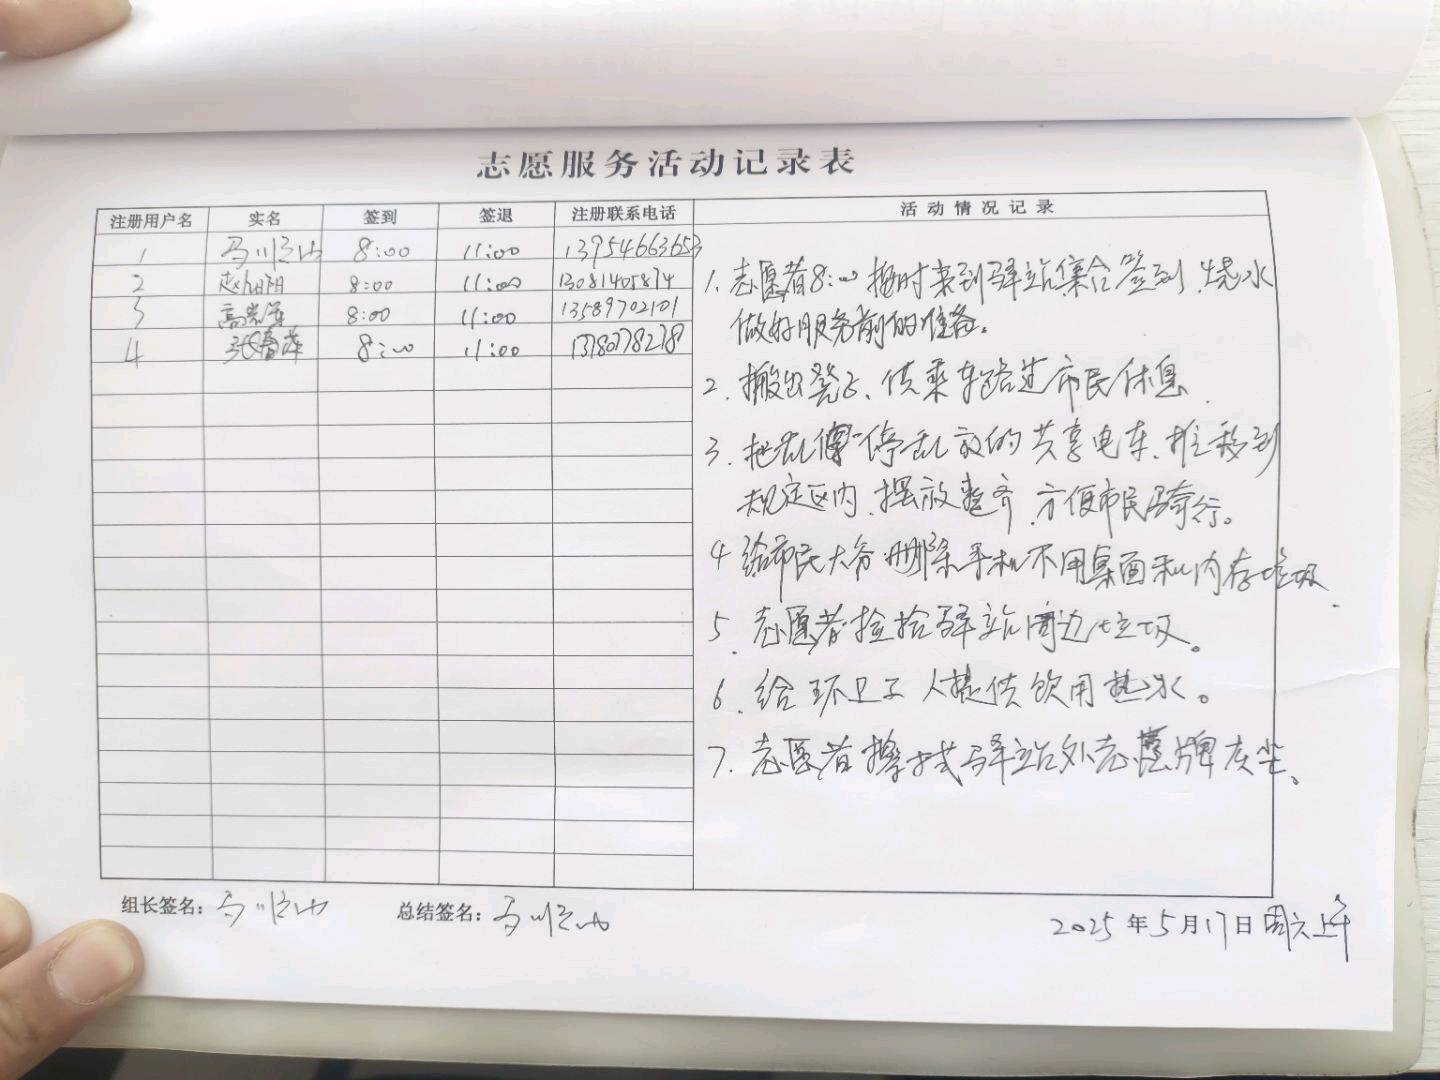 志愿服务活动记录表
注册用户名 实名 签到 签退 注册联系电话 活动情况记录
1 马顺山 8:00 11:00 13954663653
2 8:00 11:00 13081405874
3 8:00 11:00 13589702101
4 张春萍 8:00 11:00
1. 志愿者8:00按时来到驿站集合签到,烧水
做好服务前的准备。
2. 搬出凳子、供乘车路过市民休息.
3. 把乱停乱放的共享电车、推移到
规定区内、摆放整齐、方便市民骑行。
4 给市民大爷删除手机不用桌面和内存垃圾.
5. 志愿者捡拾驿站周边垃圾。
6. 给环卫工人提供饮用热水。
7. 志愿者擦拭驿站外志愿牌灰尘。
组长签名: 马顺山 总结签名: 马顺山
2025年5月17日周六上午